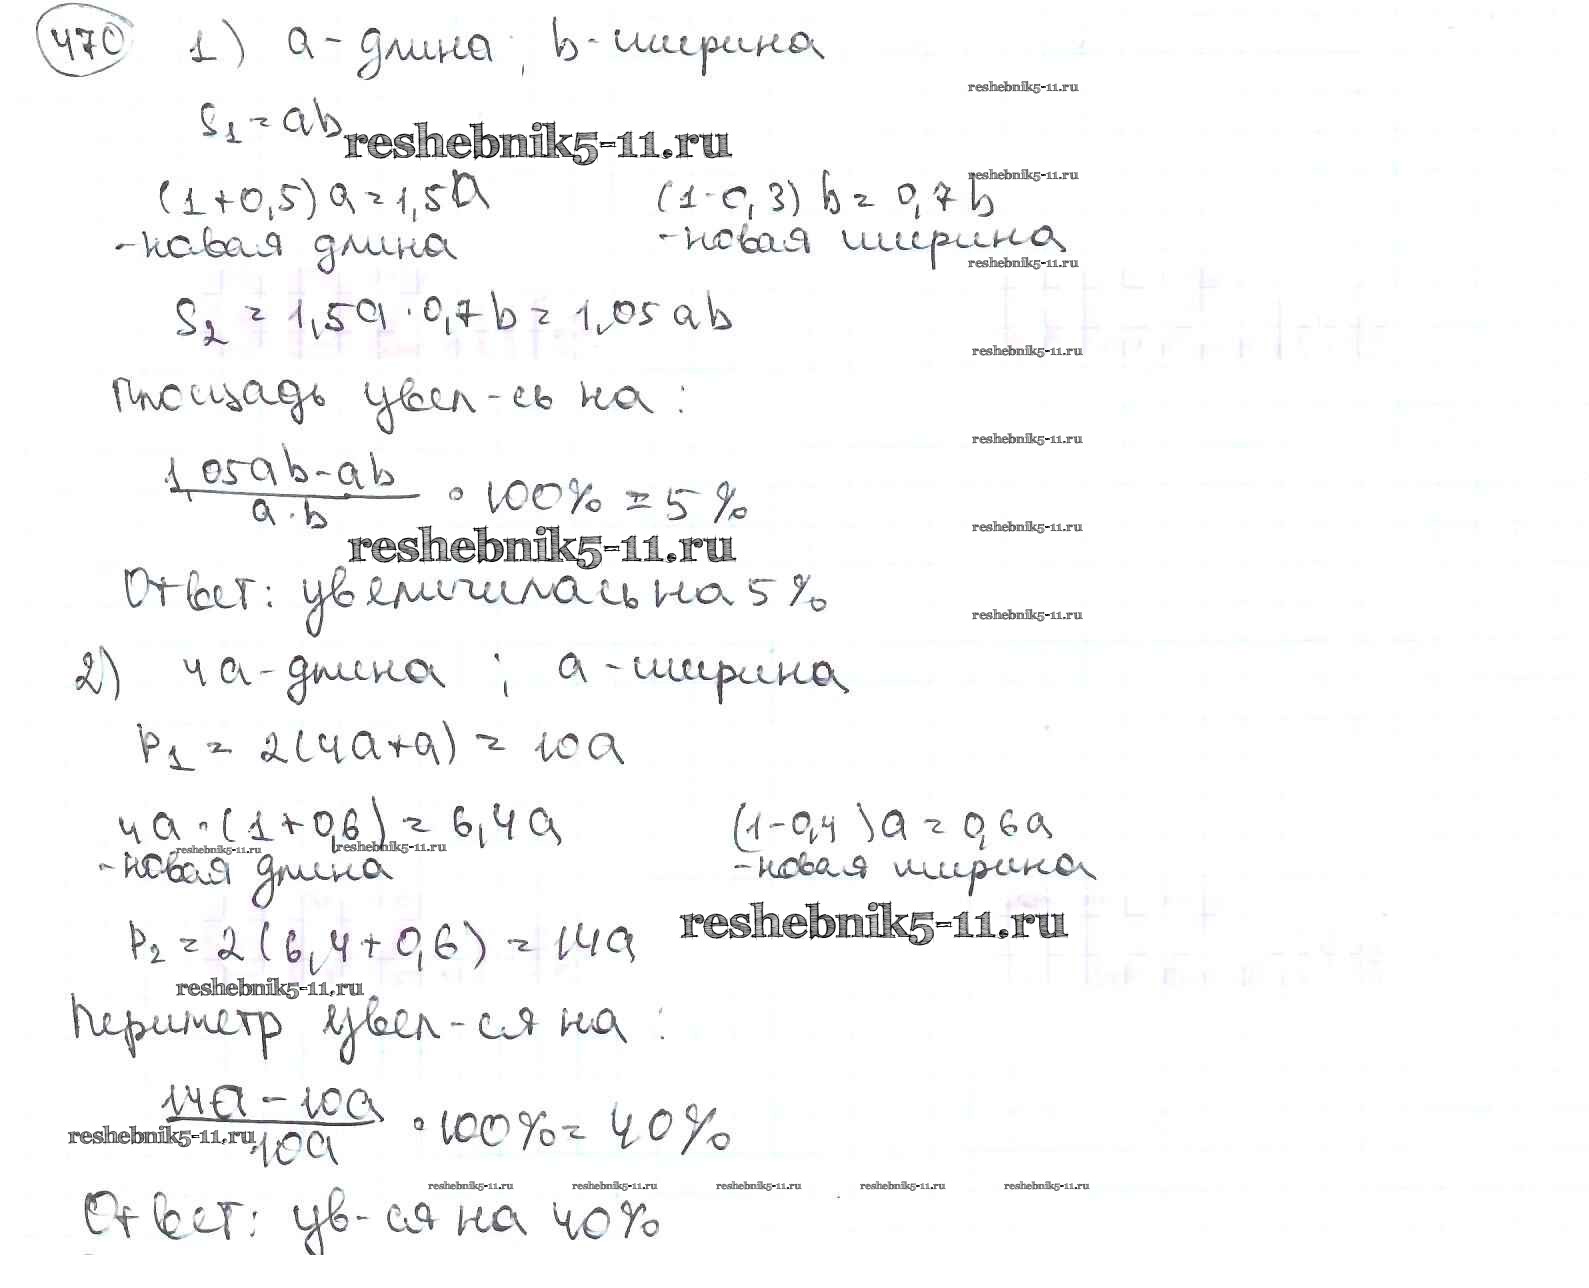 470 1) a - длина; b - ширина
reshebnik5-11.ru
S₁ = ab
reshebnik5-11.ru
(1+0,5)a = 1,5a (1-0,3)b = 0,7b
reshebnik5-11.ru
- новая длина - новая ширина
reshebnik5-11.ru
S₂ = 1,5a · 0,7b = 1,05ab
reshebnik5-11.ru
Площадь увел-сь на:
reshebnik5-11.ru
1,05ab - ab
a·b
· 100% = 5%
reshebnik5-11.ru
reshebnik5-11.ru
Ответ: увеличилась на 5%
reshebnik5-11.ru
2) 4a - длина; a - ширина
P₁ = 2(4a+a) = 10a
4a·(1+0,6) = 6,4a (1-0,4)a = 0,6a
reshebnik5-11.ru reshebnik5-11.ru
- новая длина - новая ширина
reshebnik5-11.ru
P₂ = 2(6,4+0,6) = 14a
reshebnik5-11.ru
Периметр увел-ся на:
14a - 10a
10a
· 100% = 40%
reshebnik5-11.ru
reshebnik5-11.ru reshebnik5-11.ru reshebnik5-11.ru reshebnik5-11.ru reshebnik5-11.ru
Ответ: ув-ся на 40%